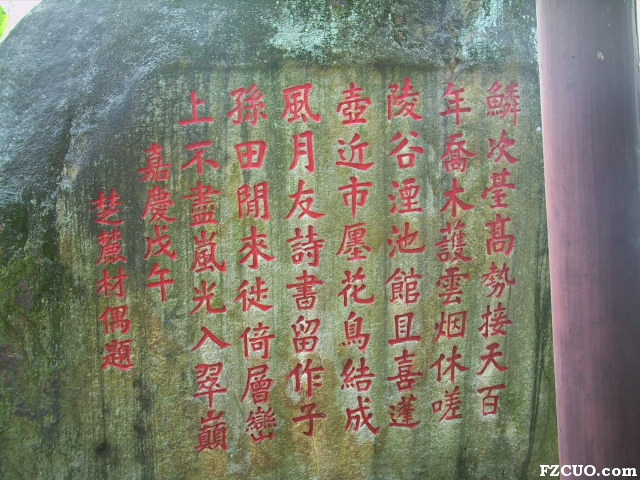 鱗次臺高勢接天百
年喬木護雲烟休嗟
陵谷湮池館且喜蓬
壺近市廛花鳥結成
風月友詩書留作子
孫田閒來徙倚層巒
上不盡嵐光入翠巔
嘉慶戊午
楚麓材偶題
FZCUO.com